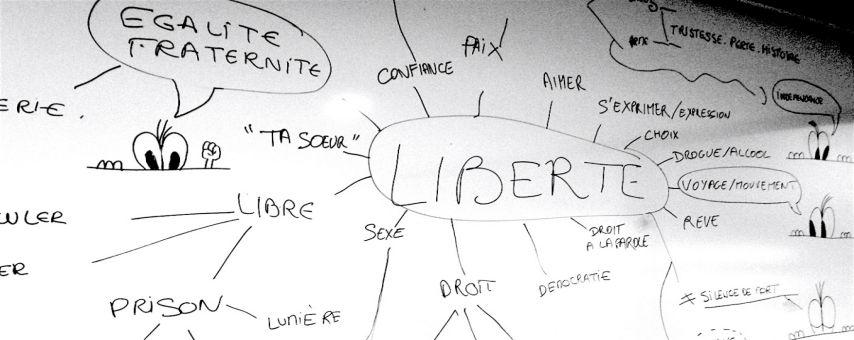 EGALITE
FRATERNITE
CONFIANCE
PAIX
AIMER
TRISTESSE. PERTE. HISTOIRE
INDEPENDANCE
S'EXPRIMER/EXPRESSION
CHOIX
ERIE.
"TA SOEUR"
LIBERTE
DROGUE/ALCOOL
VOYAGE/MOUVEMENT
REVE
LIBRE
ULER
SEXE
DROIT
A LA PAROLE
ER
PRISON
LUMIÈRE
DROIT
DEMOCRATIE
≠ SILENCE DE MORT